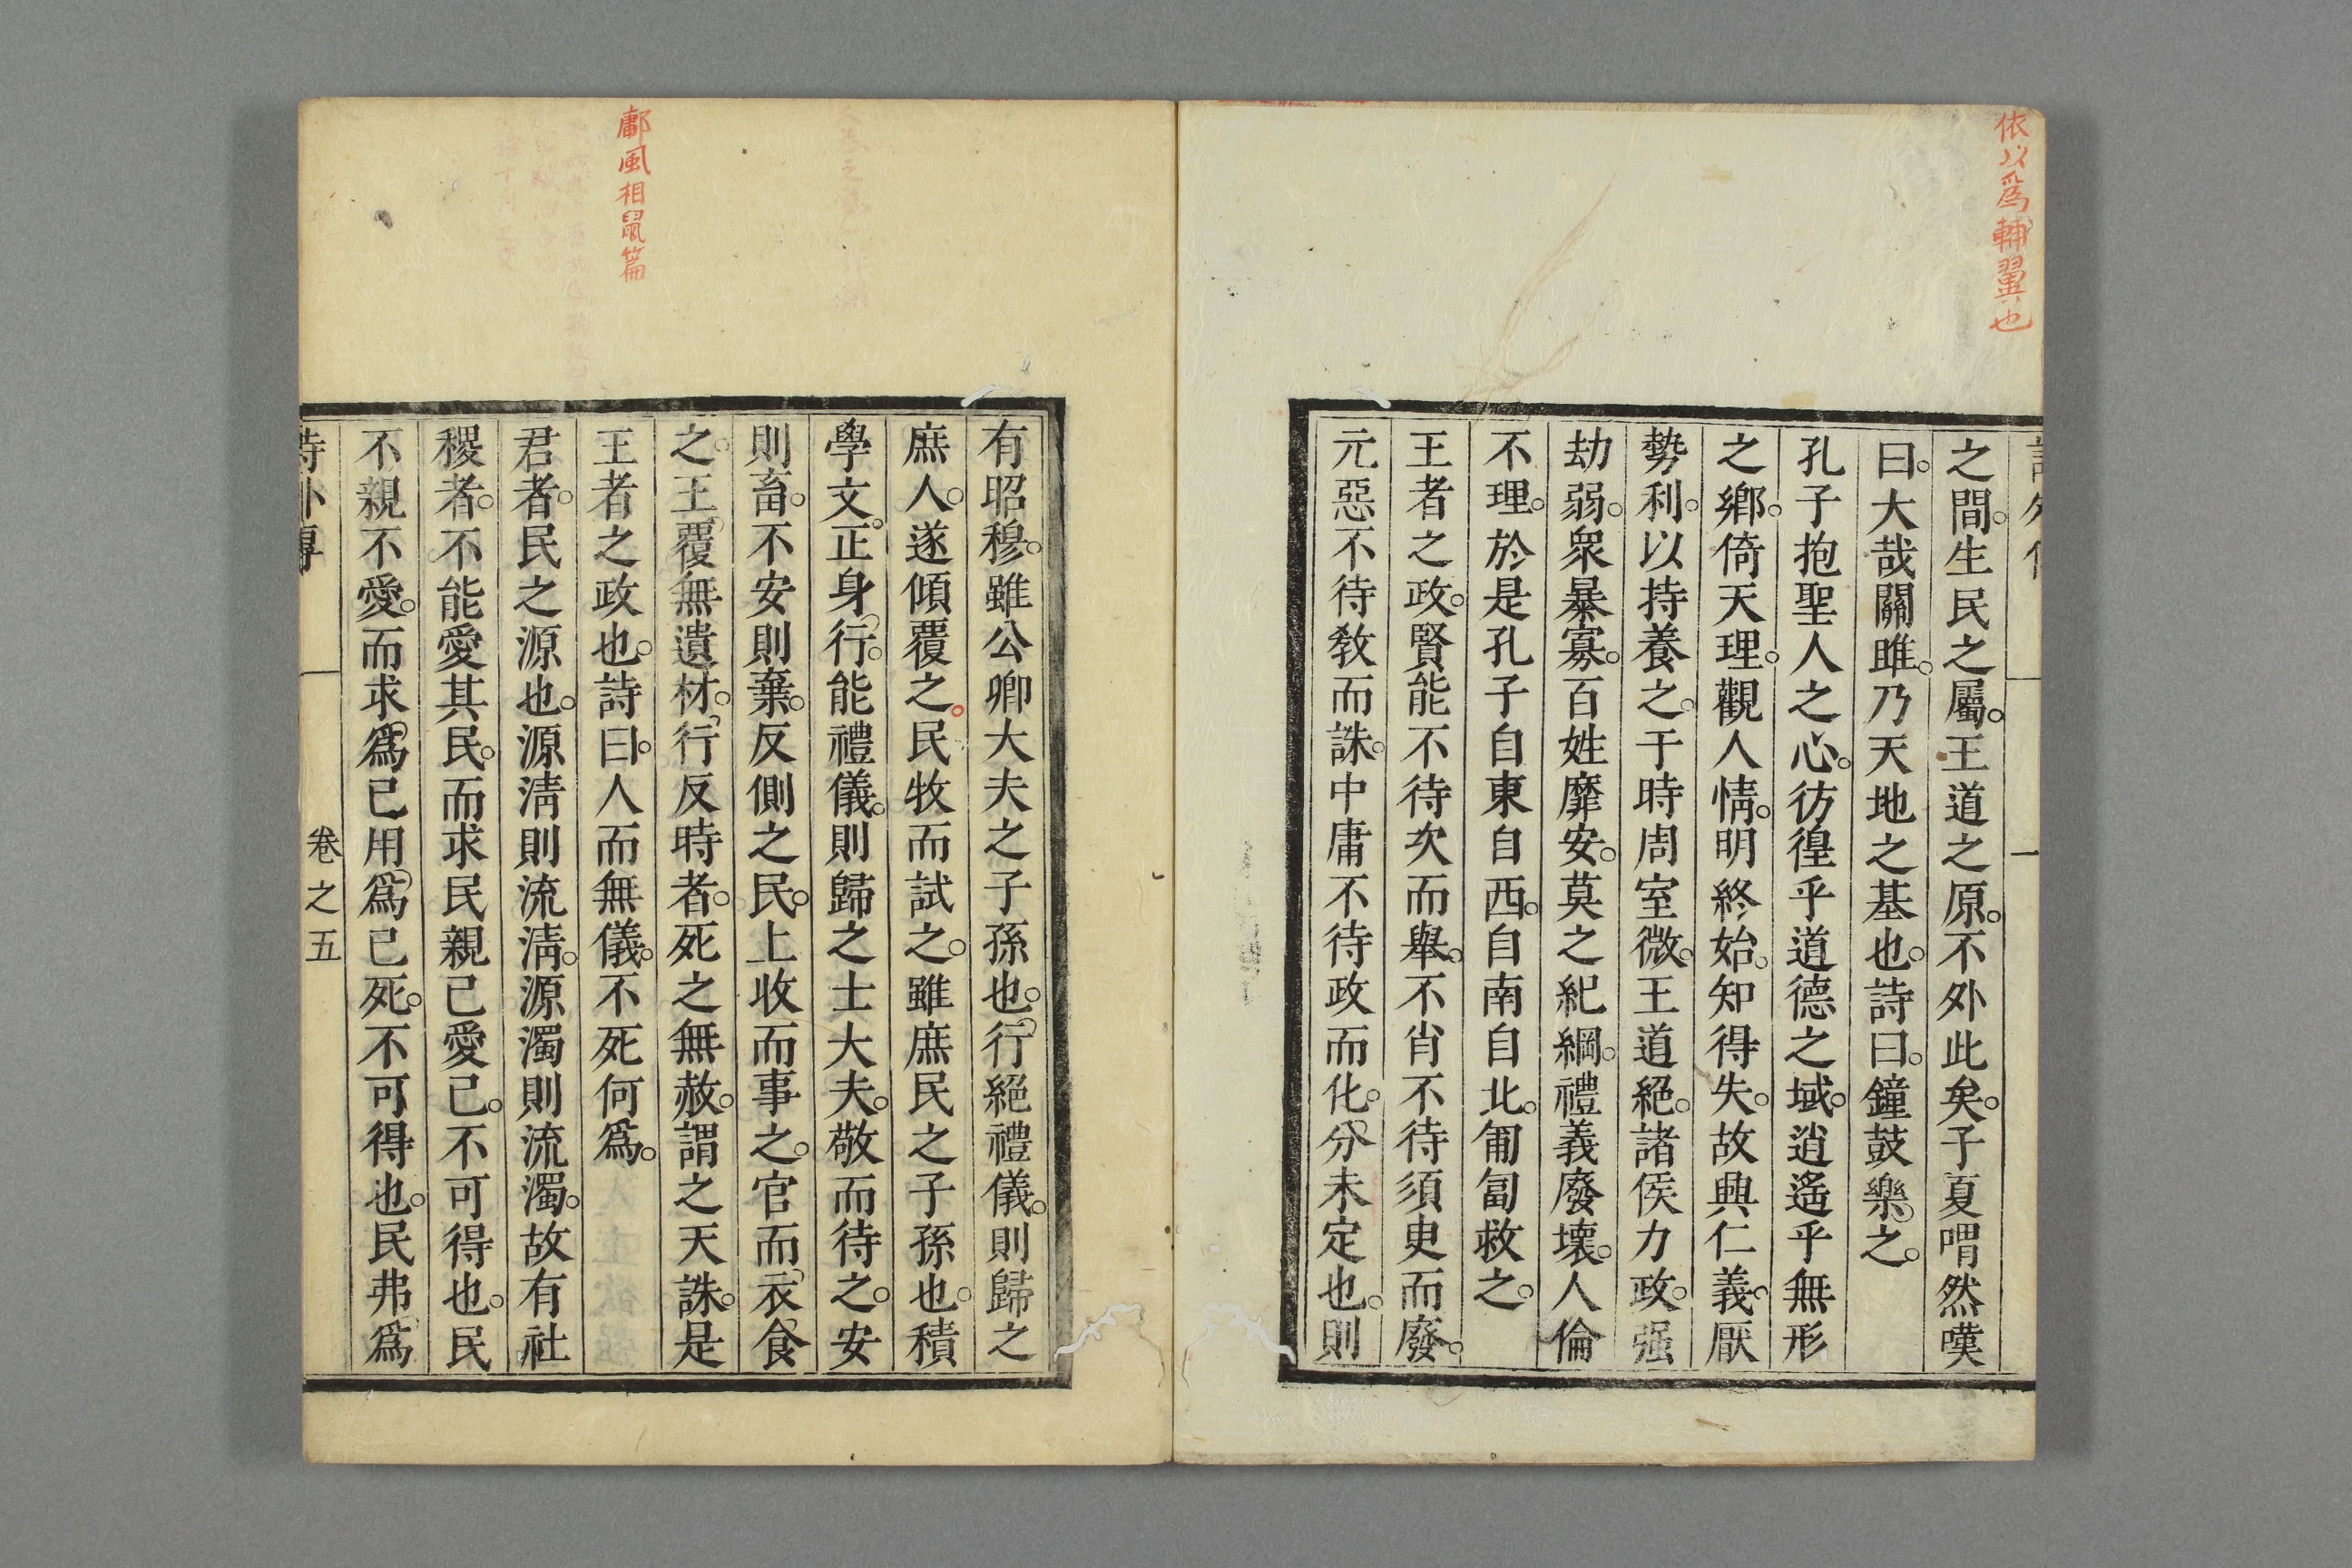 依以爲輔翼也
之間。生民之屬。王道之原。不外此矣。子夏喟然嘆
曰。大哉關雎。乃天地之基也。詩曰。鐘鼓樂之。
孔子抱聖人之心。彷徨乎道德之域。逍遙乎無形
之鄉。倚天理。觀人情。明終始。知得失。故興仁義。厭
勢利。以持養之。于時周室微。王道絕。諸侯力政。强
劫弱。衆暴寡。百姓靡安。莫之紀綱。禮義廢壞。人倫
不理。於是孔子自東自西。自南自北。匍匐救之。
王者之政。賢能不待次而舉。不肖不待須臾而廢。
元惡不待敎而誅。中庸不待政而化。分未定也。則
鄘風相鼠篇
有昭穆。雖公卿大夫之子孫也。行絕禮儀。則歸之
庶人。遂傾覆之。民牧而試之。雖庶民之子孫也。積
學文。正身行。能禮儀。則歸之士大夫。敬而待之。安
則畜。不安則棄。反側之民。上收而事之。官而衣食
之。王覆無遺材。行反時者。死之無赦。謂之天誅。是
王者之政也。詩曰。人而無儀。不死何爲。
君者。民之源也。源淸則流淸。源濁則流濁。故有社
稷者。不能愛其民。而求民親己愛己。不可得也。民
不親不愛。而求爲己用爲己死。不可得也。民弗爲
詩外傳
卷之五